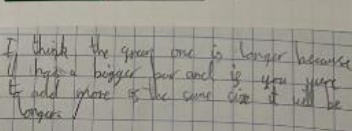 I think the green one is longer because
it has a bigger bar and is you were
to add more of the same size it will be
longer